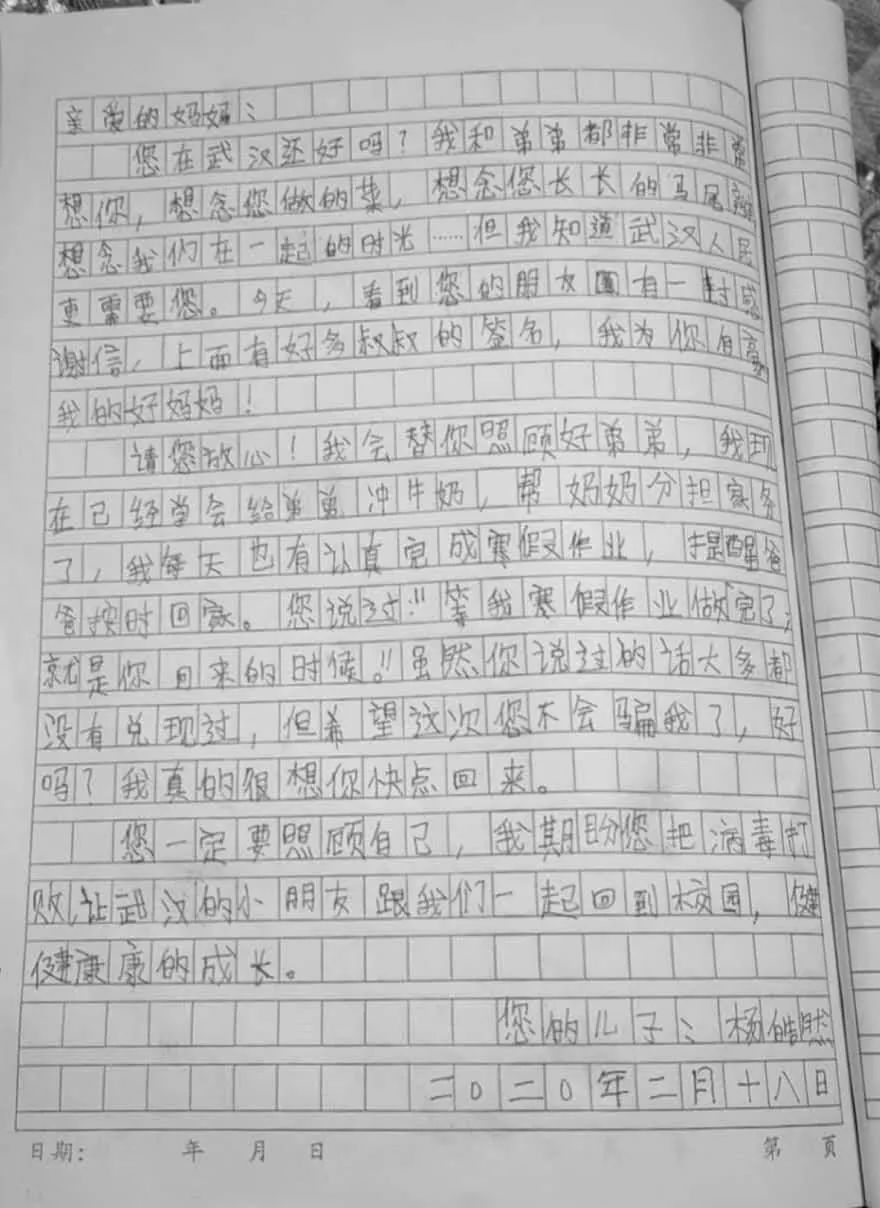 亲爱的妈妈：
您在武汉还好吗？我和弟弟都非常非常
想你，想念您做的菜，想念您长长的马尾辫
想念我们在一起的时光……但我知道武汉人民
更需要您。今天，看到您的朋友圈有一封感
谢信，上面有好多叔叔的签名，我为你自豪
我的好妈妈！
请您放心！我会替你照顾好弟弟，我现
在已经学会给弟弟冲牛奶，帮妈妈分担家务
了，我每天也有认真完成寒假作业，提醒爸
爸按时回家。您说过！“等我寒假作业做完了；
就是你回来的时候。”虽然你说过的话大多都
没有兑现过，但希望这次您不会骗我了，好
吗？我真的很想你快点回来。
您一定要照顾自己，我期盼您把病毒打
败，让武汉的小朋友跟我们一起回到校园，健
健康康的成长。
您的儿子：杨皓然
二0二0年二月十八日
日期： 年 月 日 第 页